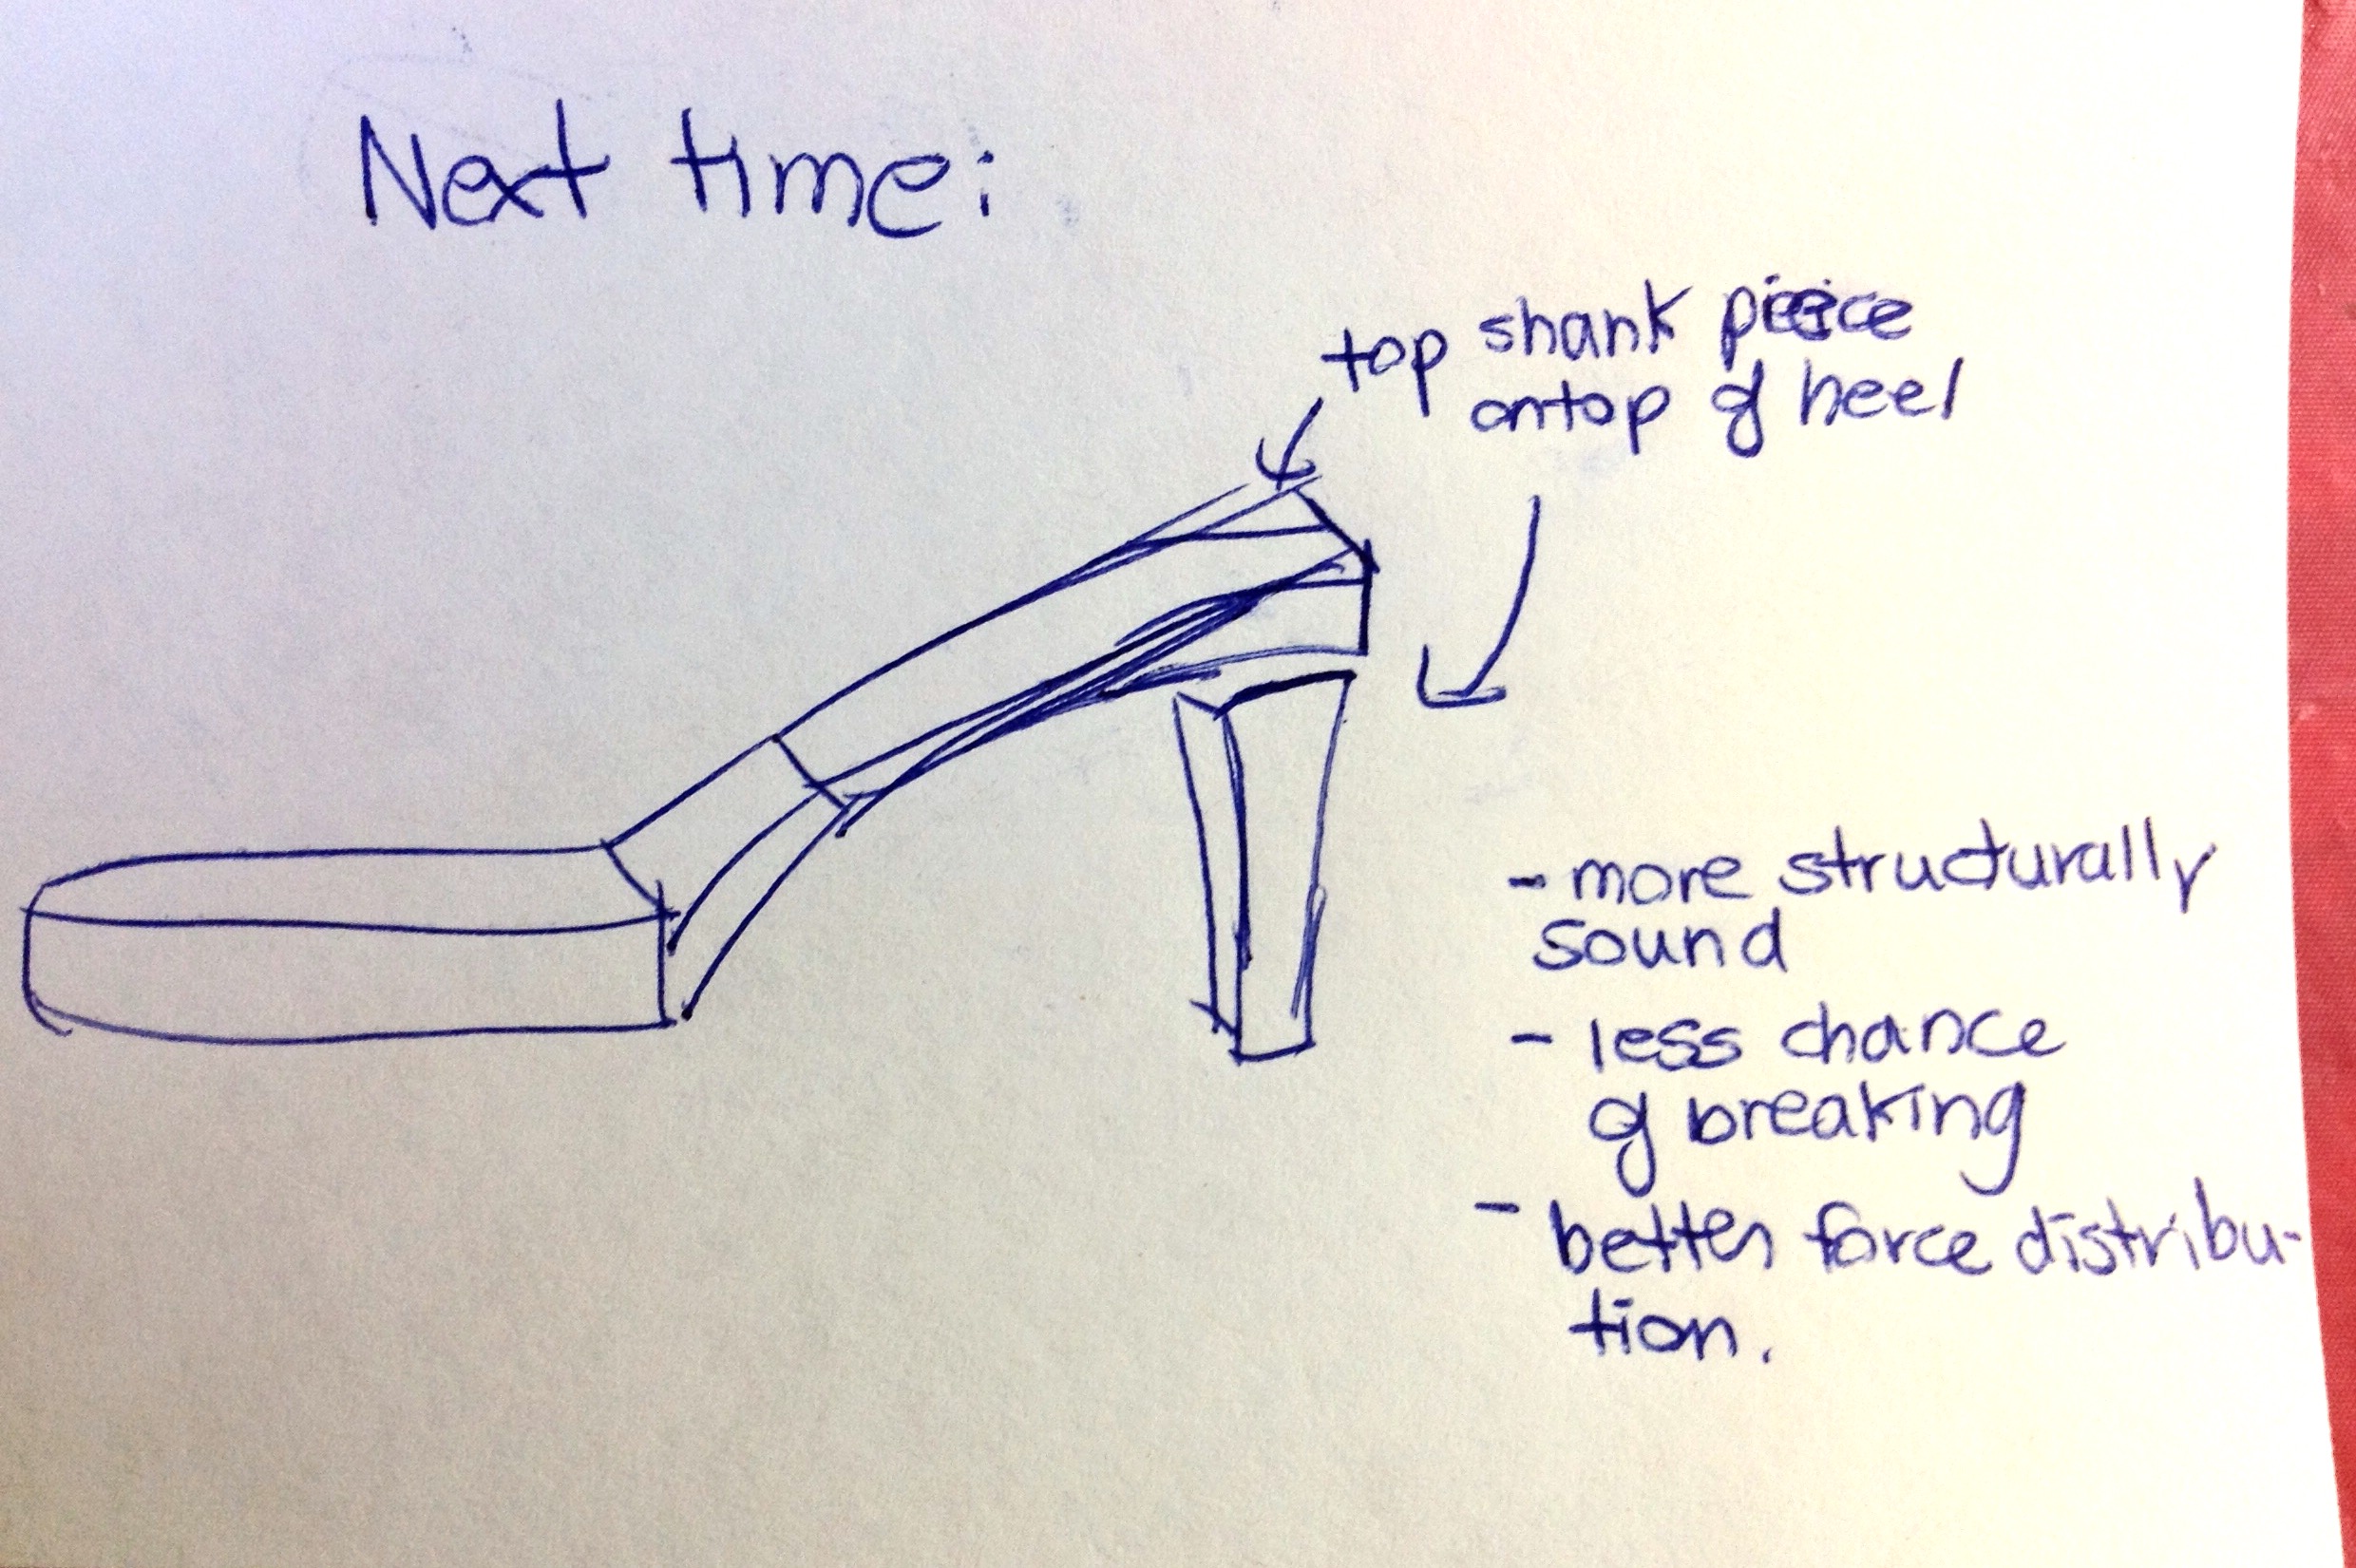 Next time:
top shank piece
ontop of heel
- more structurally
sound
- less chance
of breaking
- better force distribu-
tion.